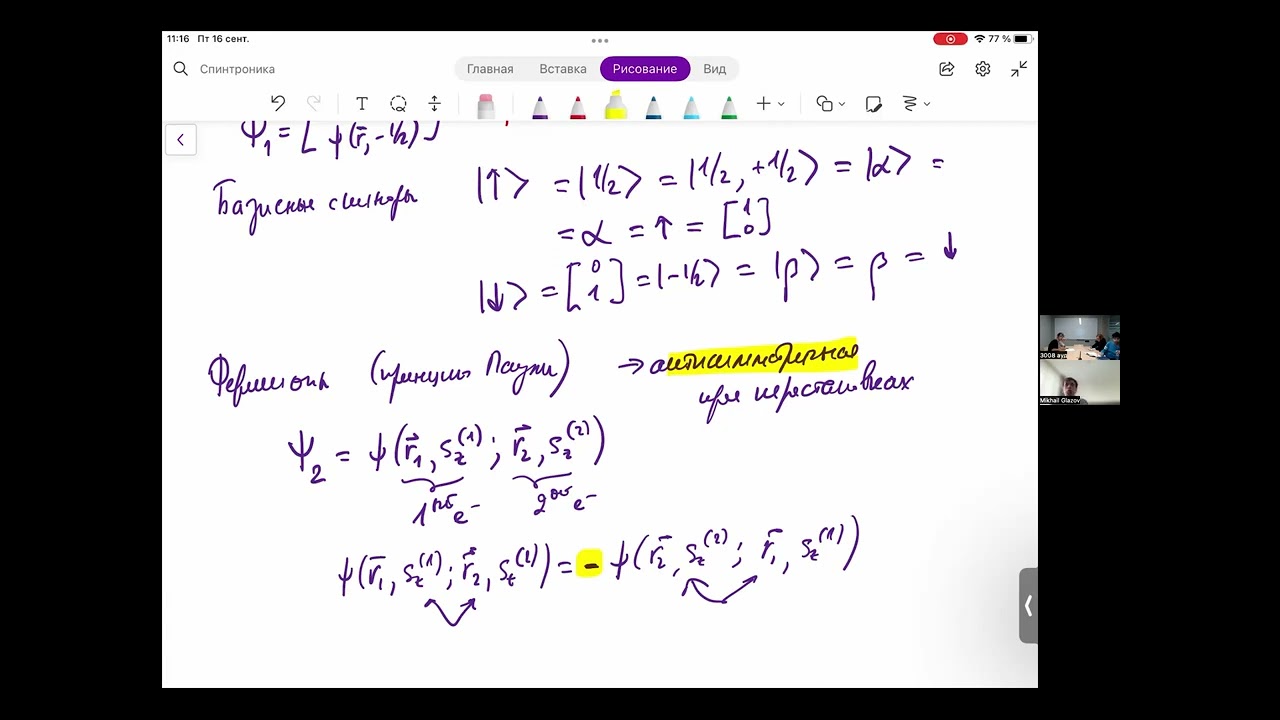 11:16 Пт 16 сент. 77 %
Спинтроника Главная Вставка Рисование Вид
Ψ₁ = [ ψ(r̄, -1/2) ]
Базисные спиноры |↑> = |1/2> = |1/2, +1/2> = |α> =
= α = ↑ = [1 0]
|↓> = [0 1] = |-1/2> = |β> = β = ↓
Фермионы (принцип Паули) → антисимметрична
при перестановках
Ψ₂ = ψ(r⃗₁, s_z⁽¹⁾; r⃗₂, s_z⁽²⁾)
1ый e⁻ 2ой e⁻
ψ(r̄₁, s_z⁽¹⁾; r⃗₂, s_z⁽²⁾) = - ψ(r̄₂, s_z⁽²⁾; r̄₁, s_z⁽¹⁾)
3008 ауд
Mikhail Glazov